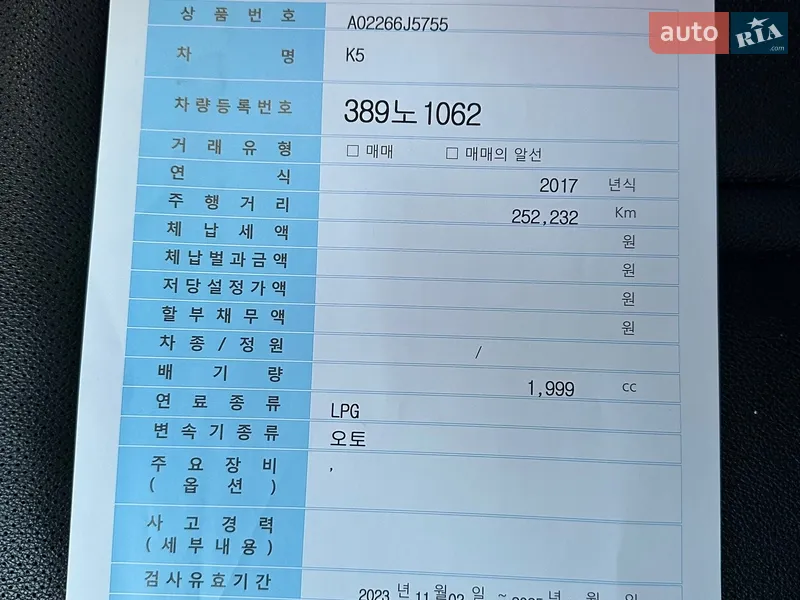 상품번호 A02266J5755
auto RIA .com
차명 K5
차량등록번호 389노1062
거래유형 □ 매매 □ 매매의 알선
연식 2017 년식
주행거리 252,232 Km
체납세액 원
체납벌과금액 원
저당설정가액 원
할부채무액 원
차종/정원 /
배기량 1,999 cc
연료종류 LPG
변속기종류 오토
주요장비 ,
(옵션)
사고경력
(세부내용)
검사유효기간 2023 년 11 월 02 일 ~ 년 월 일